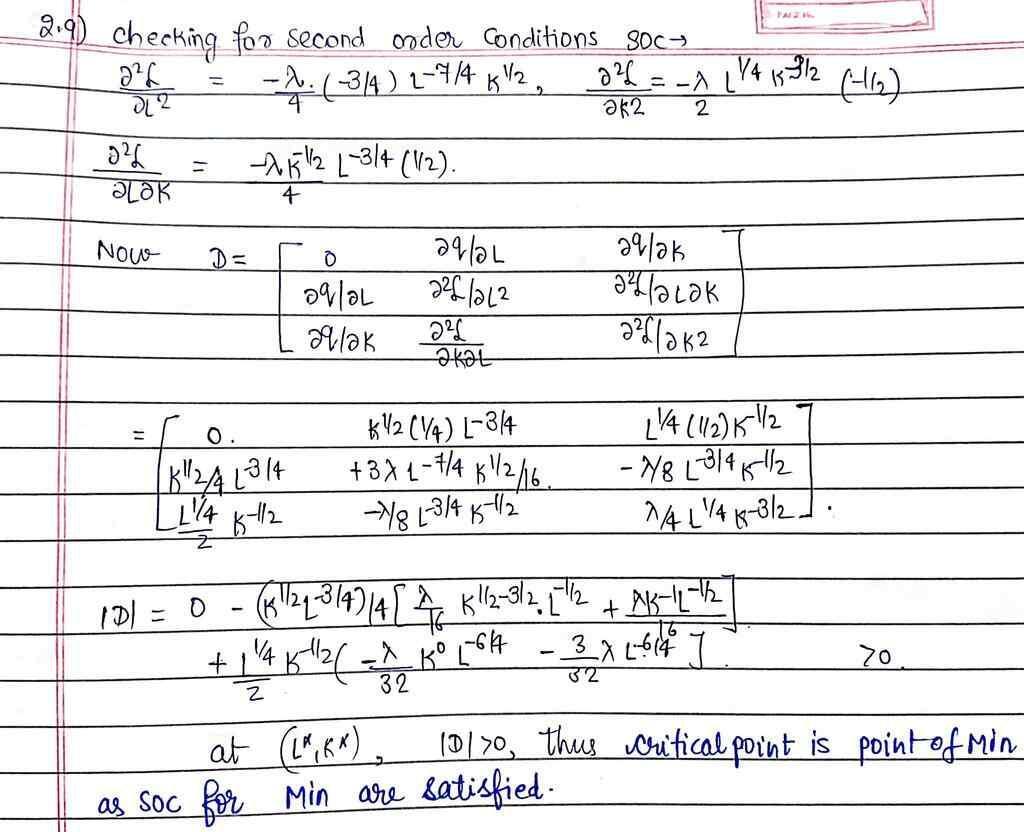 2.9) checking for second order conditions SOC→
∂²ℒ/∂L2 = -λ/4 . (-3/4) L-7/4 K1/2, ∂²ℒ/∂K2 = -λ/2 L1/4 K-3/2 (-1/2)
∂²ℒ/∂L∂K = -λK-1/2/4 L-3/4 (1/2).
Now D = [ 0 ∂q/∂L ∂q/∂K
∂q/∂L ∂²ℒ/∂L2 ∂²ℒ/∂L∂K
∂q/∂K ∂²ℒ/∂K∂L ∂²ℒ/∂K2 ]
= [ 0. K1/2 (1/4) L-3/4 L1/4 (1/2) K-1/2
K1/2/4 L-3/4 +3λ L-7/4 K1/2/16. -λ/8 L-3/4 K-1/2
L1/4/2 K-1/2 -λ/8 L-3/4 K-1/2 λ/4 L1/4 K-3/2 ] .
|D| = 0 - (K1/2L-3/4)/4 [ λ/16 K1/2-3/2 . L-1/2 + λK-1L-1/2/16 ]
+ L1/4/2 K-1/2 ( -λ/32 K0 L-6/4 - 3/32 λ L-6/4 ] >0.
at (L*, K*), |D| >0, thus critical point is point of Min
as SOC for Min are satisfied.